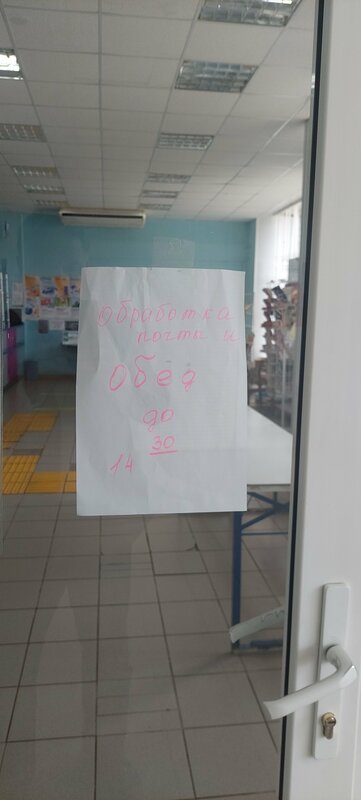 Обработка
почты и
Обед
до
14 30